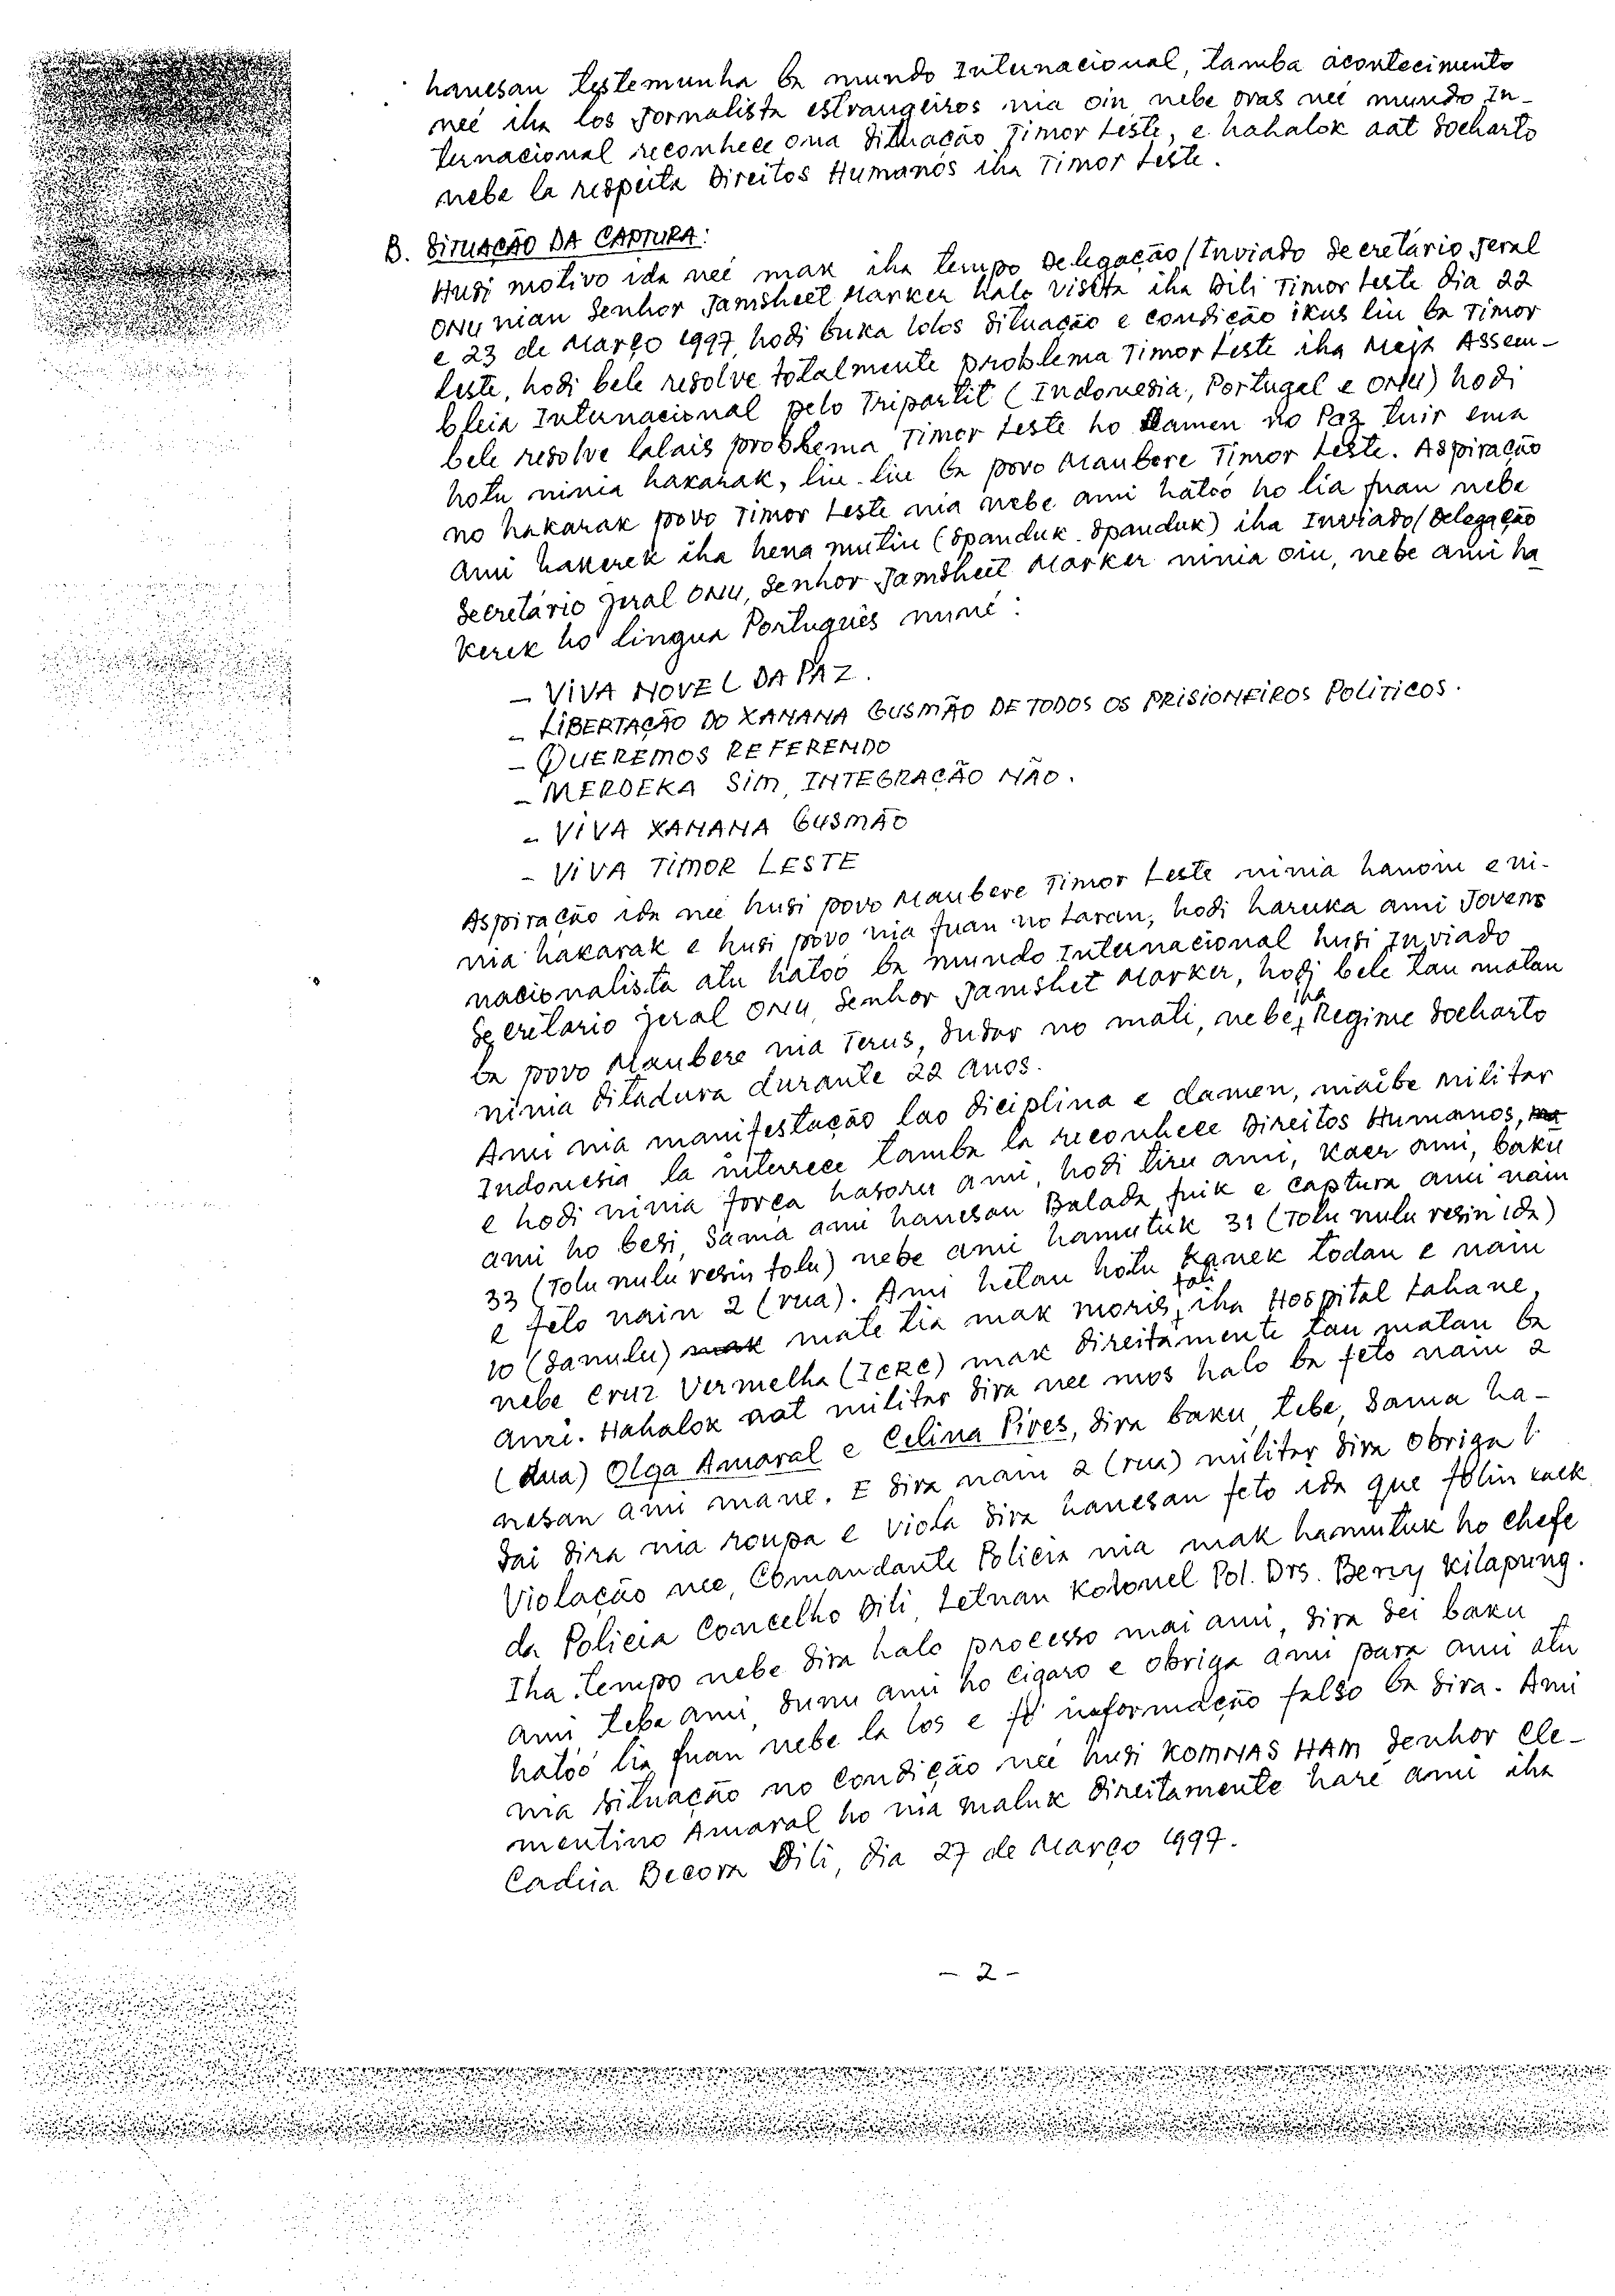 hanesan testemunha ba mundo Internacional, tamba acontecimento
neé iha los Jornalista estrangeiros nia oin nebe oras neé mundo In-
ternacional reconhece ona situação Timor Leste, e hahalok aat Soeharto
nebe la respeita Direitos Humanos iha Timor Leste.
B. SITUAÇÃO DA CAPTURA:
Husi motivo ida neé mak iha tempo Delegação/Inviado Secretário Jeral
ONU nian Senhor Jamsheet Marker halo visita iha Dili Timor Leste dia 22
e 23 de Março 1997, hodi buka lolos situação e condição ikus liu ba Timor
Leste, hodi bele resolve totalmente problema Timor Leste iha Meja Assem-
bleia Internacional pelo Tripartit (Indonesia, Portugal e ONU) hodi
bele resolve lalais problema Timor Leste ho Damen no Paz tuir ema
hotu ninia hakarak, liu-liu ba povo Maubere Timor Leste. Aspiração
no hakarak povo Timor Leste nia nebe ami hatoó ho lia fuan nebe
ami hakerek iha hena mutin (Spanduk-Spanduk) iha Inviado/Delegação
Secretário Jeral ONU, Senhor Jamsheet Marker ninia oin, nebe ami ha
kerek ho lingua Português nuné:
- VIVA NOVEL DA PAZ.
- LIBERTAÇÃO DO XANANA GUSMÃO DE TODOS OS PRISIONEIROS POLITICOS.
- QUEREMOS REFERENDO
- MERDEKA SIM, INTEGRAÇÃO NÃO.
- VIVA XANANA GUSMÃO
- VIVA TIMOR LESTE
Aspiração ida neé husi povo Maubere Timor Leste ninia hanoin e ni-
nia hakarak e husi povo nia fuan no laran, hodi haruka ami Jovens
nacionalista atu hatoó ba mundo Internacional husi Inviado
Secretario Jeral ONU, Senhor Jamshet Marker, hodi bele tau matan
ba povo Maubere nia Terus, Susar no mati, nebe iha Regime Soeharto
ninia Ditadura durante 22 anos.
Ami nia manifestação lao diciplina e damen, maibe militar
Indonesia la interrece tamba la reconhece Direitos Humanos,
e hodi ninia força hasoru ami, hodi tiru ami, kaer ami, baku
ami ho besi, Sama ami hanesan Balada fuik e captura ami nain
33 (Tolu nulu resin tolu) nebe ami hamutuk 31 (Tolu nulu resin ida)
e feto nain 2 (rua). Ami hetan hotu kanek todan e nain
10 (Sanulu) mak mate tia mak moris fali iha Hospital Lahane,
nebe Cruz Vermelha (ICRC) mak direitamente tau matan ba
ami. Hahalok aat militar sira nee mos halo ba feto nain 2
(dua) Olga Amaral e Celina Pires, sira baku, tebe, Sama ha-
nesan ami mane. E sira nain 2 (rua) militar sira obriga
Sai sira nia roupa e viola sira hanesan feto ida que folin laek
Violação nee, Comandante Policia nia mak hamutuk ho chefe
da Policia Concelho Dili, Letnan Kolonel Pol. Drs. Bercy Kilapung.
Iha tempo nebe sira halo processo mai ami, sira sei baku
ami, tebe ami, sunu ami ho cigaro e obriga ami para ami atu
hatoó lia fuan nebe la los e fó informação falso ba sira. Ami
nia situação no condição neé husi KOMNAS HAM Senhor Cle-
mentino Amaral ho nia maluk direitamente haré ami iha
Cadeia Becora Dili, dia 27 de Março 1997.
- 2 -